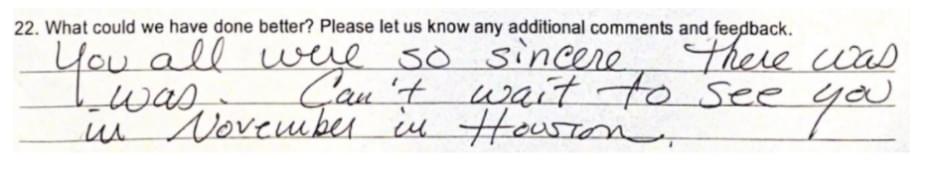 22. What could we have done better? Please let us know any additional comments and feedback.
You all were so sincere There was
I was. Can't wait to see you
in November in Houston.